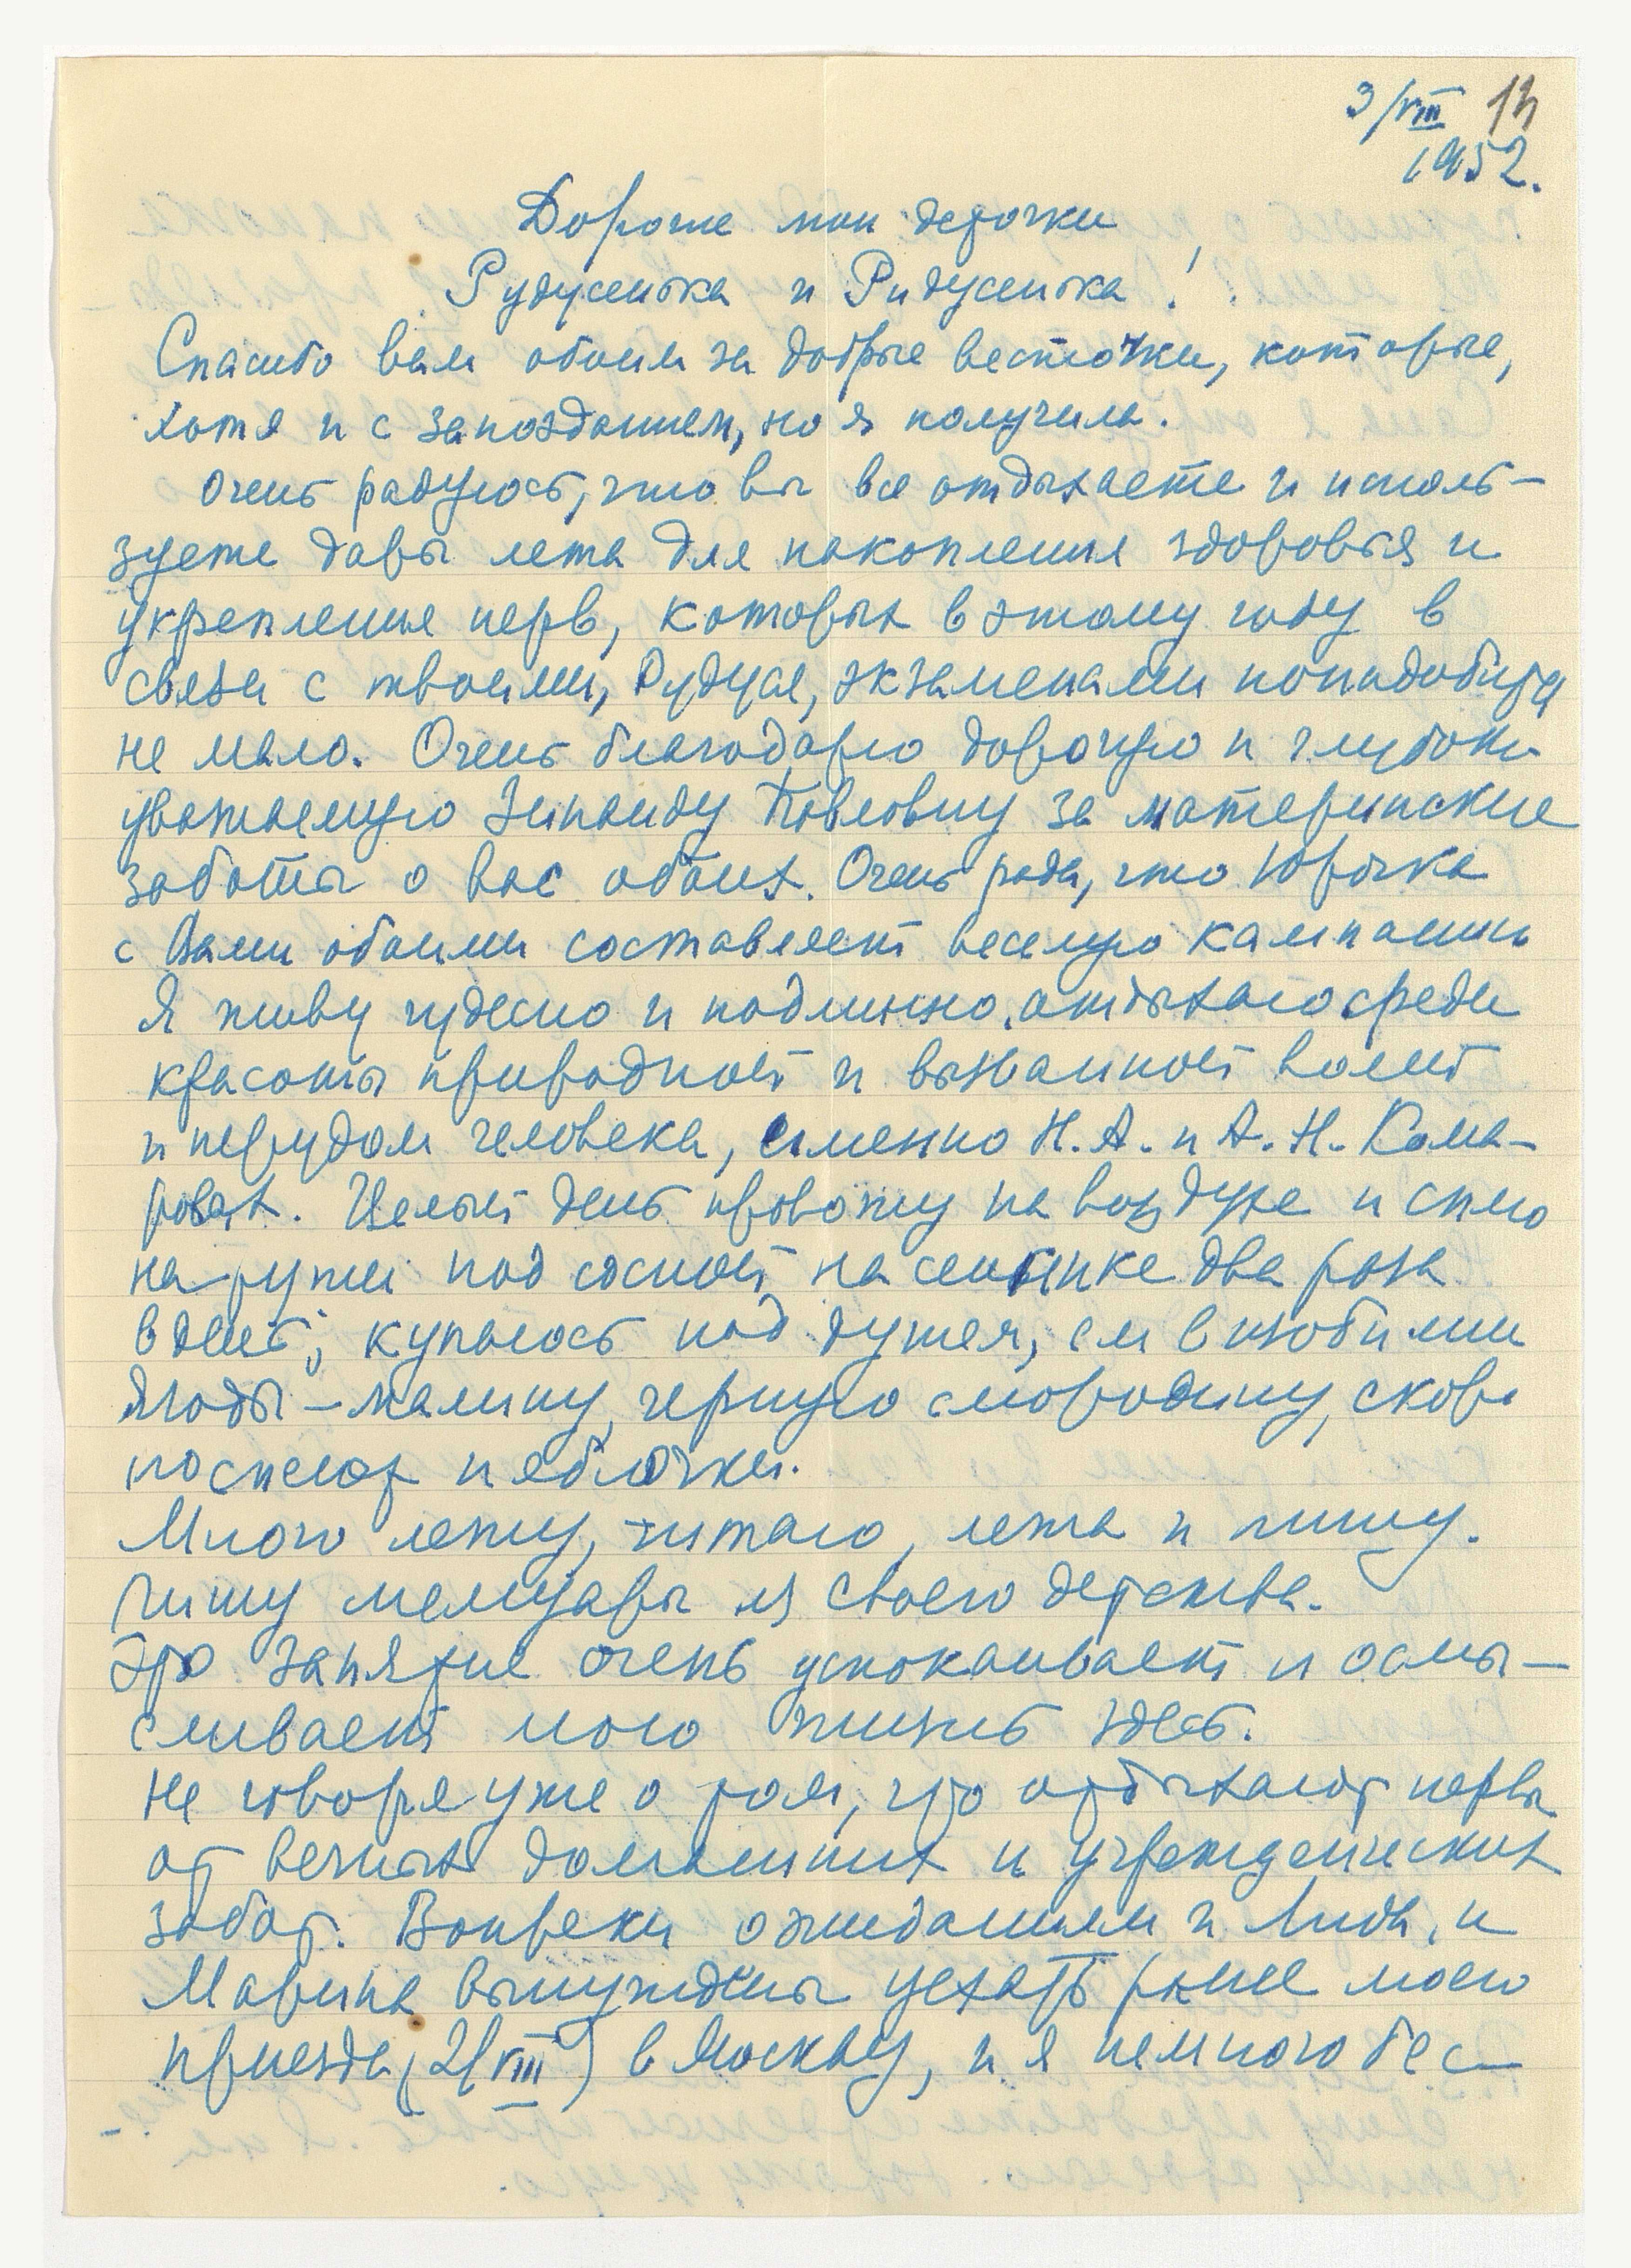 3/VIII 13
1952.
Дорогие мои деточки
Рудусенька и Ридусенька!
Спасибо вам обоим за добрые весточки, которые,
хотя и с запозданием, но я получила.
Очень радуюсь, что вы все отдыхаете и исполь-
зуете дары лета для накопления здоровья и
укрепления нерв, которых в этому году в
связи с твоими, Рудуся, экзаменами понадобится
не мало. Очень благодарю дорогую и глубоко
уважаемую Зинаиду Павловну за материнские
заботы о вас обоих. Очень рада, что Юрочка
с Вами обоими составляет веселую кампанию
Я живу чудесно и подлинно отдыхаю среди
красоты природной и вызванной волей
и трудом человека, именно Н.А. и А.Н. Кома-
ровых. Целый день провожу на воздухе и сплю
на-ружи под сосной на сеннике два раза
в день; купаюсь под душем, ем с любыми
ягоды – малину, черную смородину, скоро
поспеют и яблочки.
Много лежу, читаю, лежа и пишу.
Пишу мемуары из своего детства.
Это занятие очень успокаивает и осмы-
сливает мою жизнь здесь.
Не говоря уже о том, что отдыхают нервы
от вечных домашних и учрежденческих
забот. Вопреки ожиданиям и Лида, и
Марина вынуждены уехать ранее моего
приезда (21/VIII) в Москву, и я немного бес-